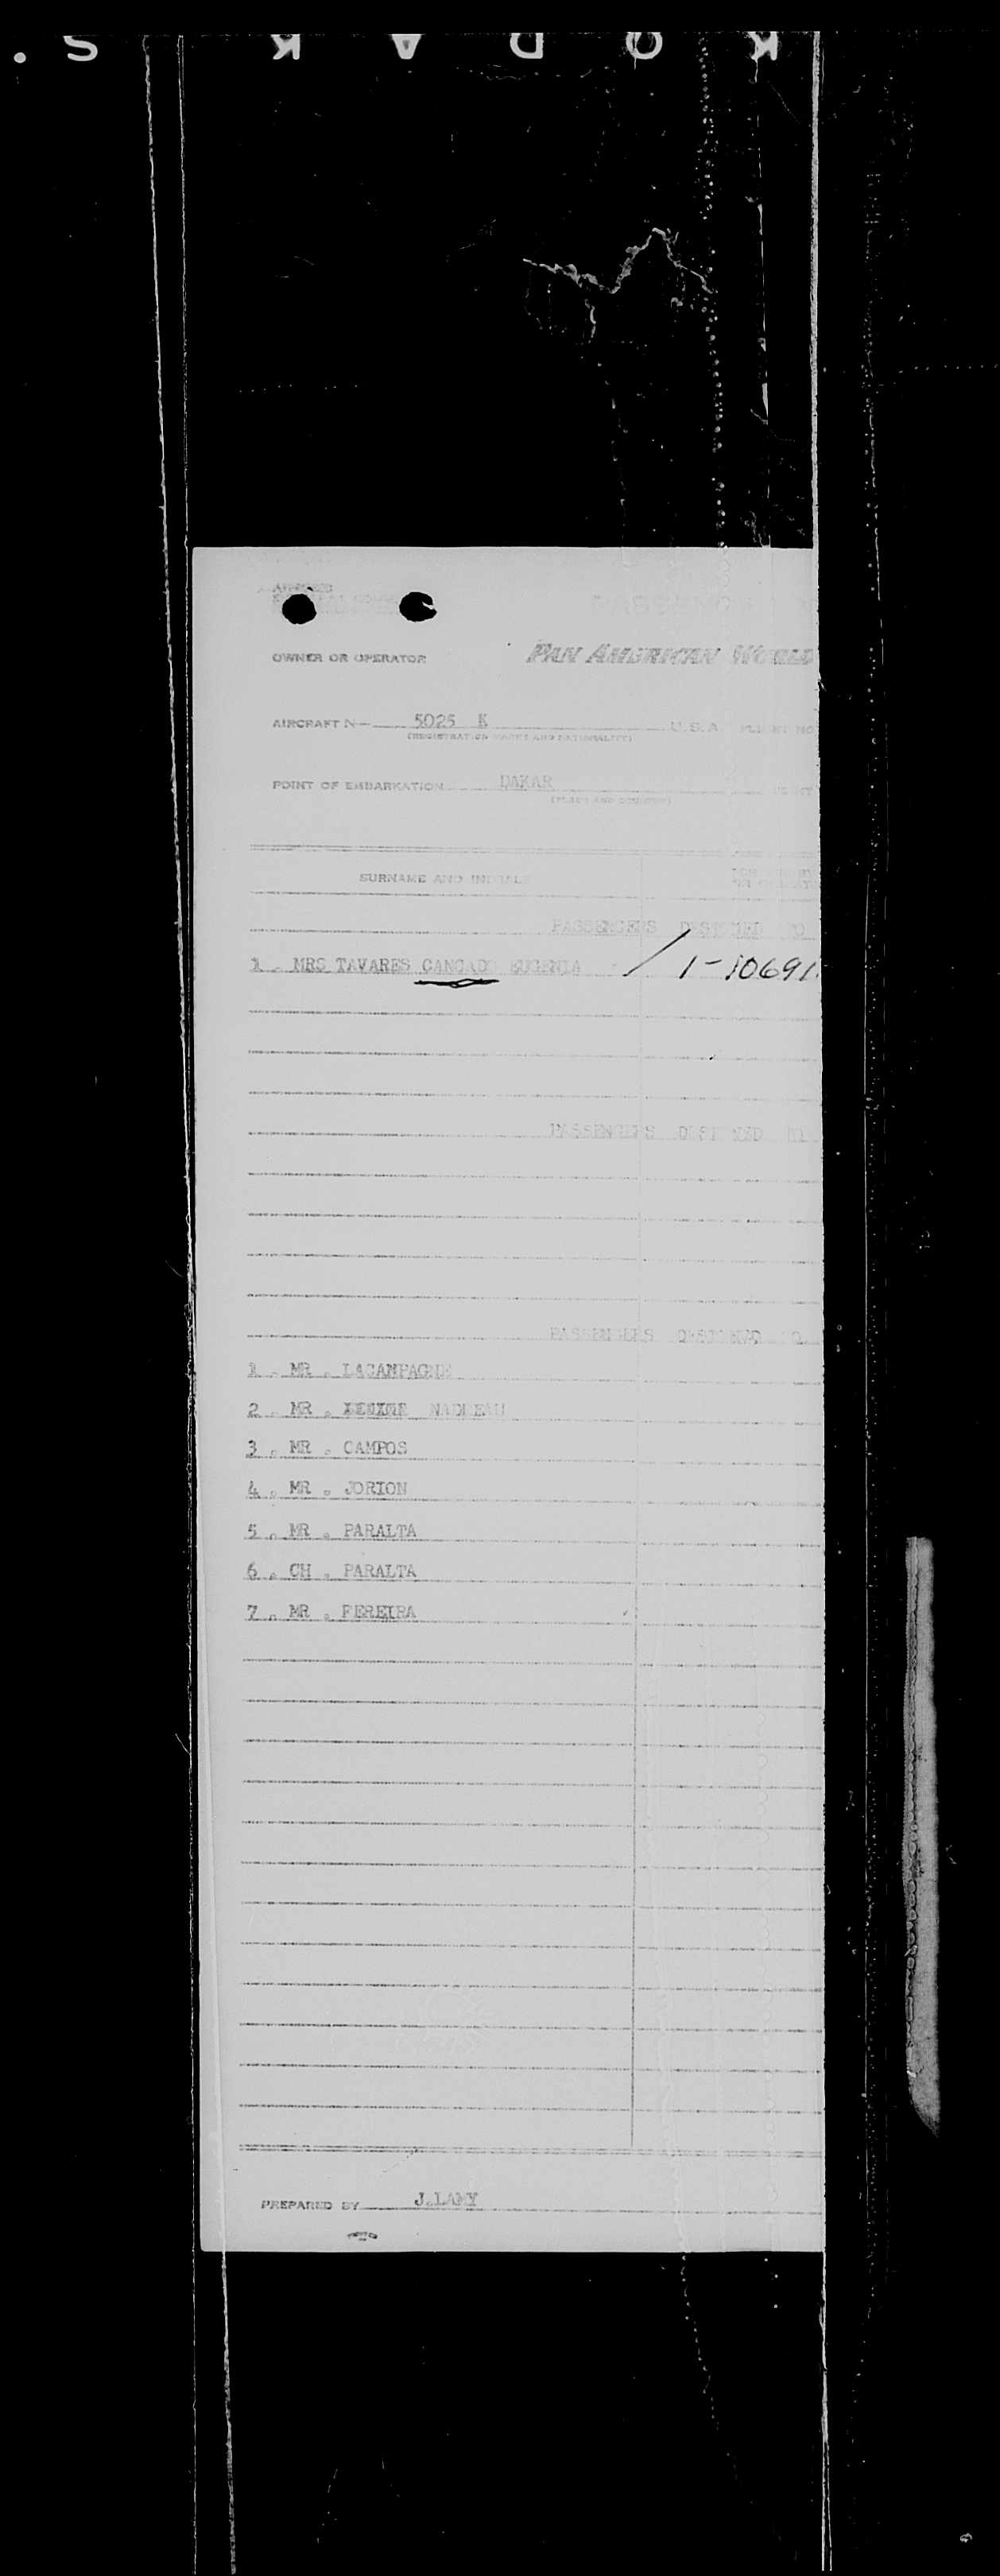 S . K A D O K
OWNER OR OPERATOR PAN AMERICAN WORLD
AIRCRAFT N— 5025 K U.S.A. FLIGHT NO
(REGISTRATION MARKS AND NATIONALITY)
POINT OF EMBARKATION DAKAR
(PLACE AND COUNTRY)
SURNAME AND INITIALS
PASSENGERS DESTINED TO
1 . MRS TAVARES CANCADO EUGENIA / 1-10691
PASSENGERS DESTINED TO
PASSENGERS DESTINED TO
1 . MR . LACAMPAGNE
2 . MR . NADREAU
3 . MR . CAMPOS
4 . MR . JORION
5 . MR . PARALTA
6 . CH . PARALTA
7 . MR . PEREIRA
PREPARED BY J.LAMY